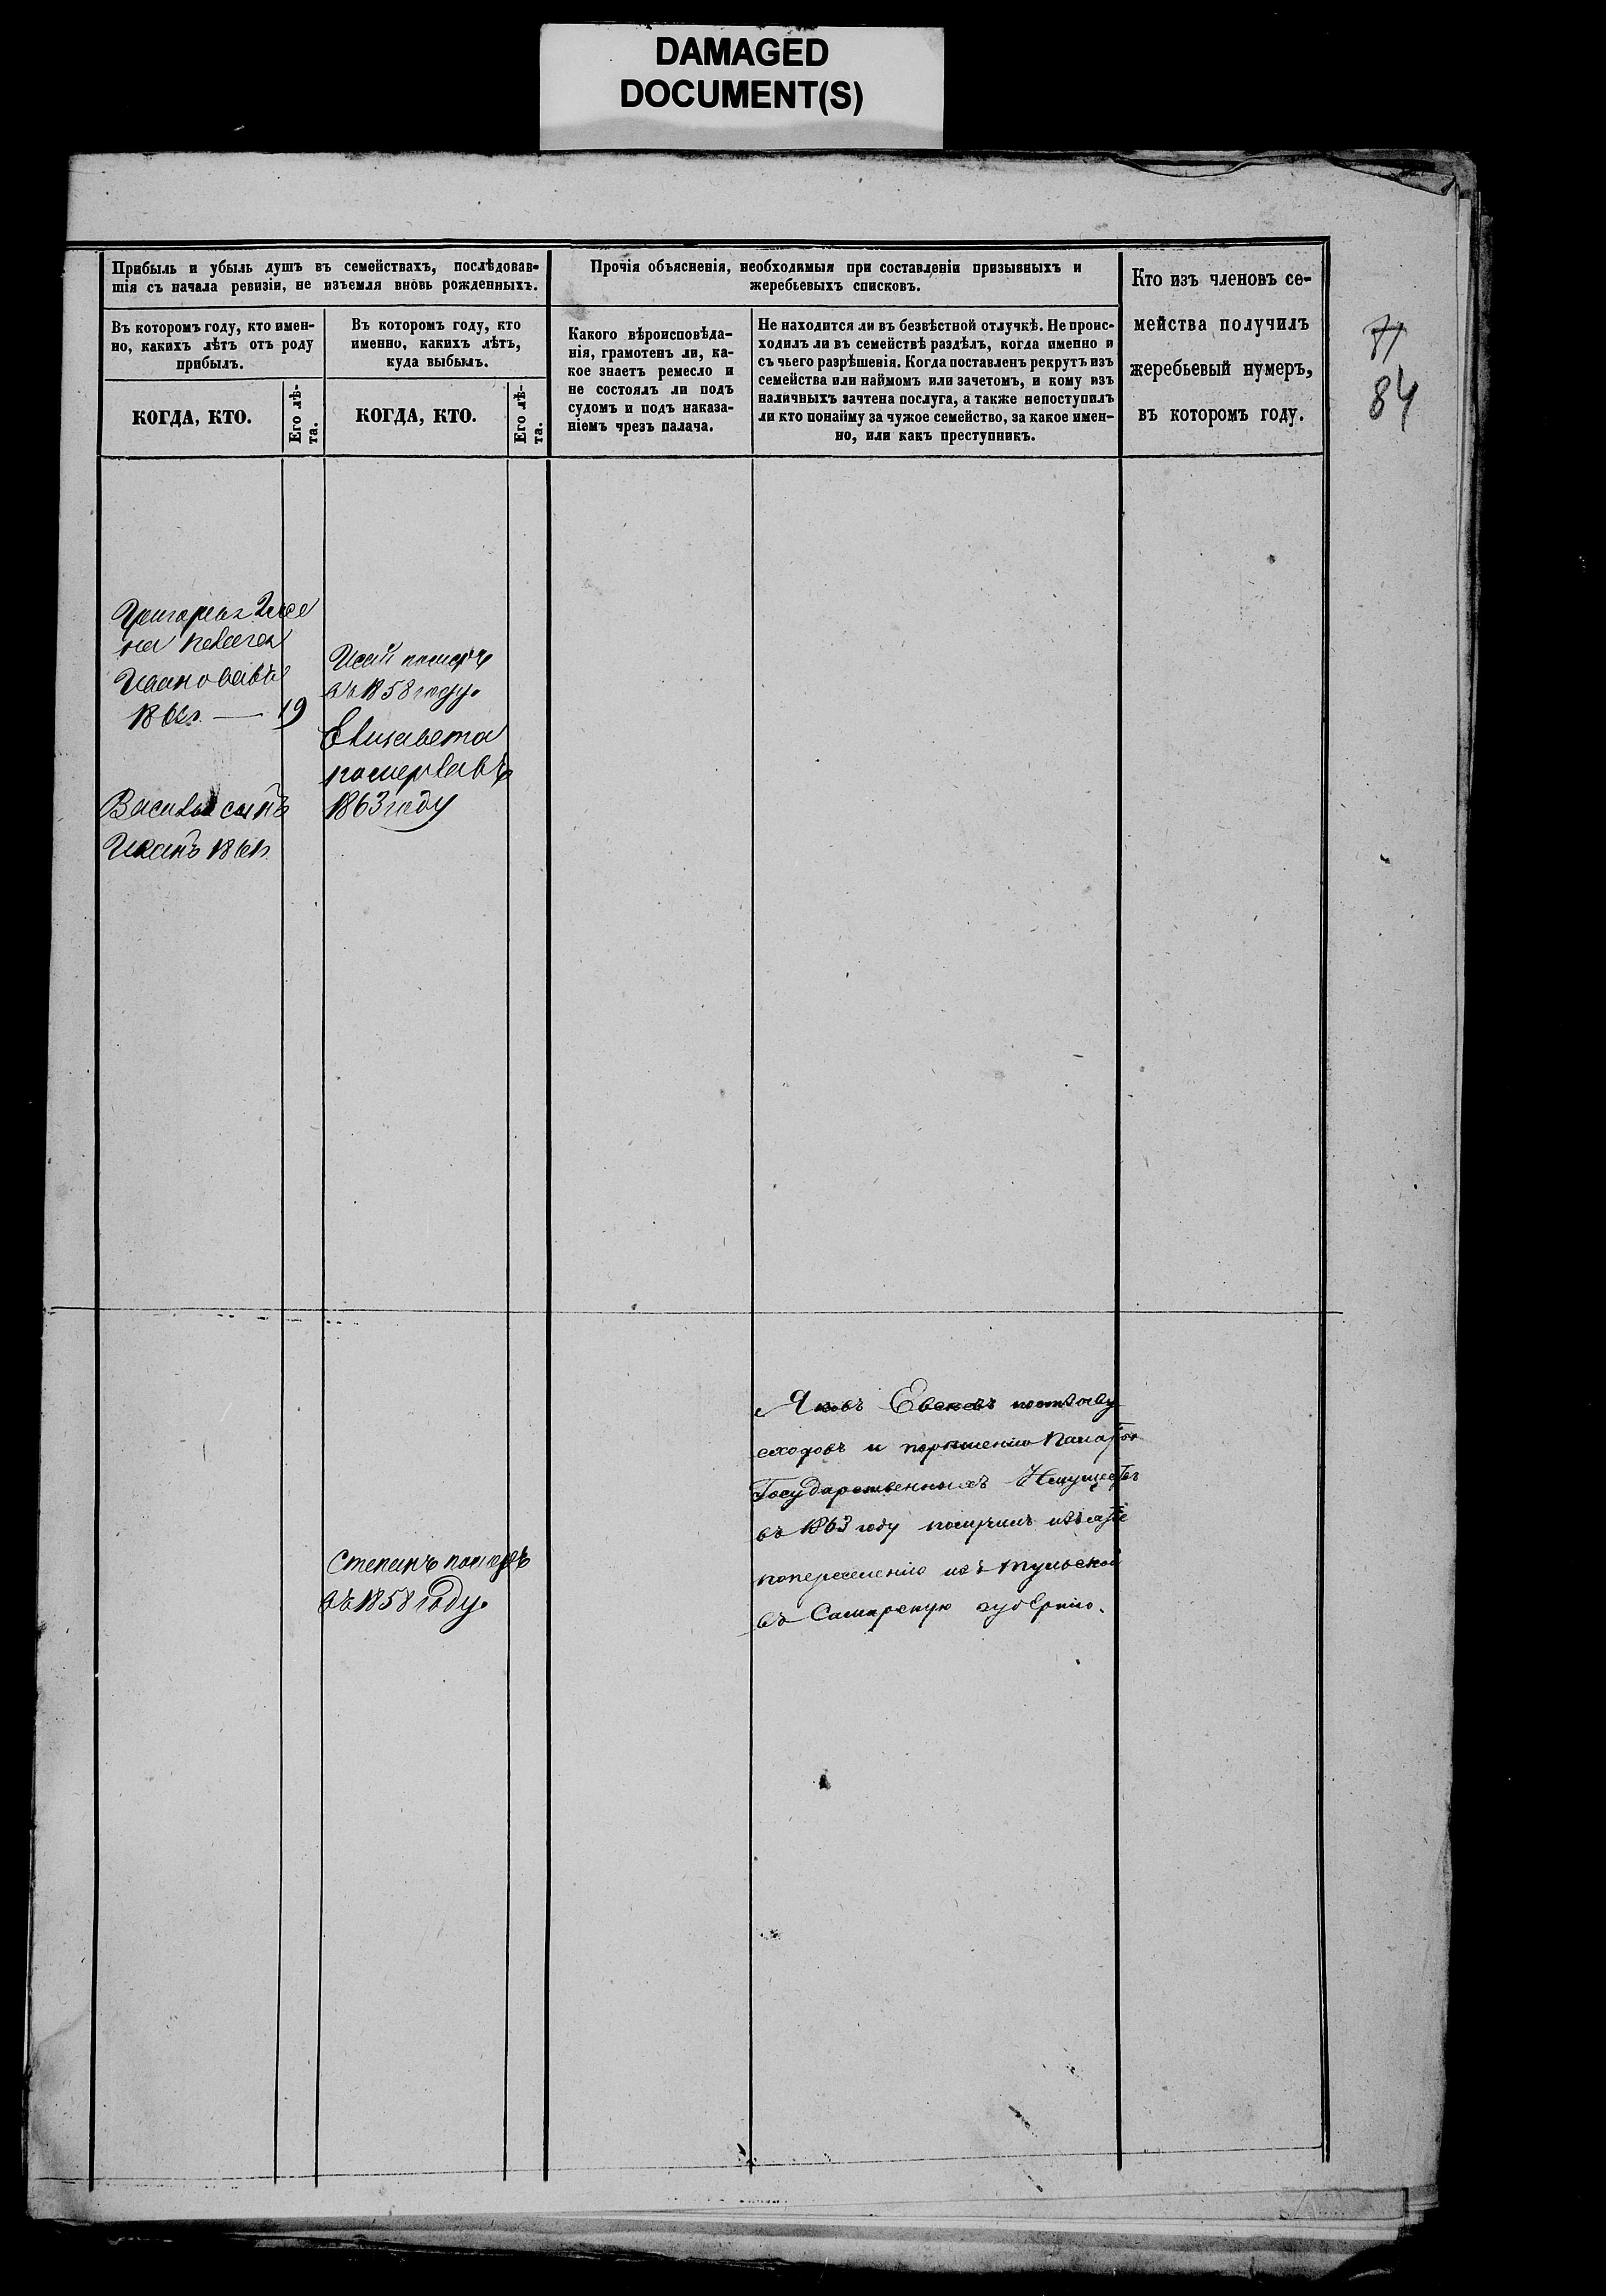 DAMAGED
DOCUMENT(S)
Прибыль и убыль душъ въ семействахъ, послѣдовав-
шія съ начала ревизіи, не изъемля вновь рожденныхъ.
Прочія объясненія, необходимыя при составленіи призывныхъ и
жеребьевыхъ списковъ.
Кто изъ членовъ се-
мейства получилъ
жеребьевый нумеръ,
въ которомъ году.
Въ которомъ году, кто имен-
но, какихъ лѣтъ отъ роду
прибылъ.
Въ которомъ году, кто
именно, какихъ лѣтъ,
куда выбылъ.
Какого вѣроисповѣда-
нія, грамотенъ ли, ка-
кое знаетъ ремесло и
не состоялъ ли подъ
судомъ и подъ наказа-
ніемъ чрезъ палача.
Не находится ли въ безвѣстной отлучкѣ. Не проис-
ходилъ ли въ семействѣ раздѣлъ, когда именно и
съ чьего разрѣшенія. Когда поставленъ рекрутъ изъ
семейства или наймомъ или зачетомъ, и кому изъ
наличныхъ зачтена послуга, а также непоступилъ
ли кто понайму за чужое семейство, за какое имен-
но, или какъ преступникъ.
КОГДА, КТО.
Его лѣ-
та.
КОГДА, КТО.
Его лѣ-
та.
71
84
на
19
Исай померъ
въ 1858 году.
Елизавета
померла въ
1863 году
сынъ
Иванъ
Степанъ померъ
въ 1858 году.
Яковъ
и
Государственныхъ Имуществ
въ 1863 году
попереселенію изъ Тульской
въ Самарскую губернію.